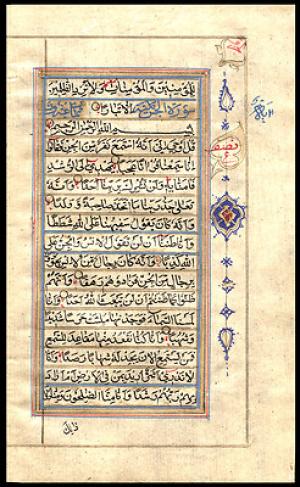 وَلِلْمُؤْمِنِينَ وَالْمُؤْمِنَاتِ وَلَا تَزِدِ الظَّالِمِينَ
إِلَّا تَبَارًا سورة الجن
بِسْمِ اللهِ الرَّحْمٰنِ الرَّحِيمِ
قُلْ أُوحِيَ إِلَيَّ أَنَّهُ اسْتَمَعَ نَفَرٌ مِنَ الْجِنِّ فَقَالُوا
إِنَّا سَمِعْنَا قُرْآنًا عَجَبًا يَهْدِي إِلَى الرُّشْدِ
فَآمَنَّا بِهِ وَلَنْ نُشْرِكَ بِرَبِّنَا أَحَدًا وَأَنَّهُ
تَعَالَى جَدُّ رَبِّنَا مَا اتَّخَذَ صَاحِبَةً وَلَا وَلَدًا
وَأَنَّهُ كَانَ يَقُولُ سَفِيهُنَا عَلَى اللهِ شَطَطًا
وَأَنَّا ظَنَنَّا أَنْ لَنْ تَقُولَ الْإِنْسُ وَالْجِنُّ عَلَى
اللهِ كَذِبًا وَأَنَّهُ كَانَ رِجَالٌ مِنَ الْإِنْسِ يَعُوذُونَ
بِرِجَالٍ مِنَ الْجِنِّ فَزَادُوهُمْ رَهَقًا وَأَنَّهُمْ
ظَنُّوا كَمَا ظَنَنْتُمْ أَنْ لَنْ يَبْعَثَ اللهُ أَحَدًا وَأَنَّا
لَمَسْنَا السَّمَاءَ فَوَجَدْنَاهَا مُلِئَتْ حَرَسًا شَدِيدًا
وَشُهُبًا وَأَنَّا كُنَّا نَقْعُدُ مِنْهَا مَقَاعِدَ لِلسَّمْعِ
فَمَنْ يَسْتَمِعِ الْآنَ يَجِدْ لَهُ شِهَابًا رَصَدًا وَأَنَّا
لَا نَدْرِي أَشَرٌّ أُرِيدَ بِمَنْ فِي الْأَرْضِ أَمْ أَرَادَ
بِهِمْ رَبُّهُمْ رَشَدًا وَأَنَّا مِنَّا الصَّالِحُونَ وَمِنَّا
نصف